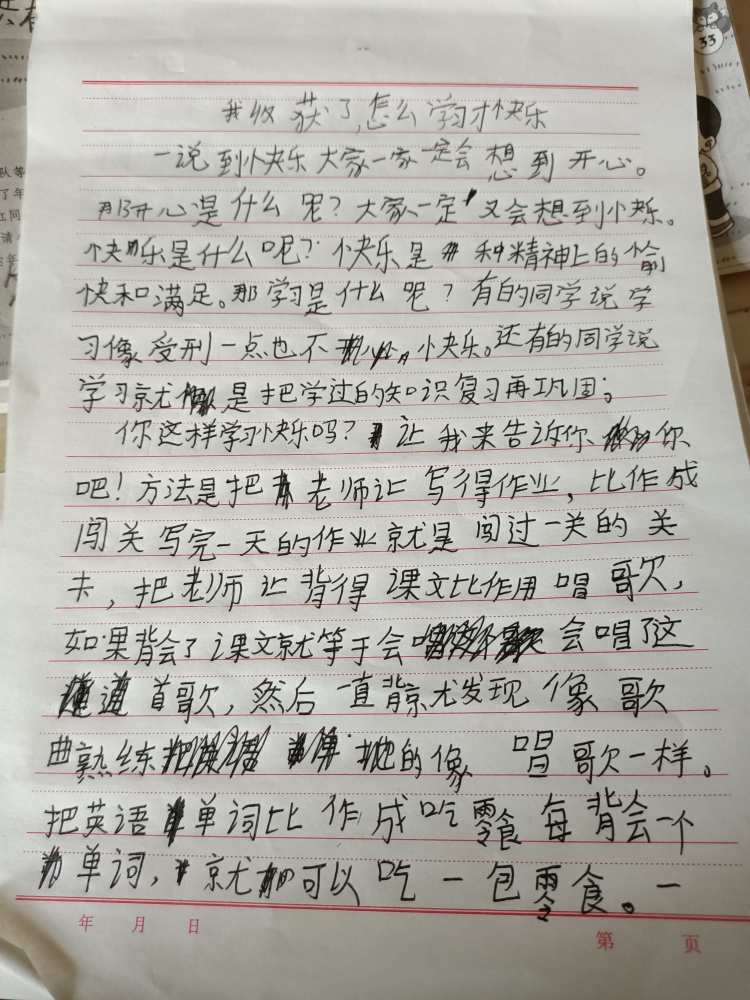 我收获了,怎么学习才快乐
一说到快乐大家一家一定会想到开心。
那开心是什么呢?大家一定又会想到快乐。
快乐是什么呢?快乐是一种精神上的愉
快和满足。那学习是什么呢?有的同学说学
习像受刑一点也不快乐。还有的同学说
学习就是把学过的知识复习再巩固;
你这样学习快乐吗?让我来告诉你你
吧!方法是把老师让写得作业,比作成
闯关写完一天的作业就是闯过一关的关
卡,把老师让背得课文比作用唱歌,
如果背会了课文就等于会会唱了这
首歌,然后一直背就发现像歌
曲熟练的像唱歌一样。
把英语单词比作成吃零食每背会一个
单词,就可以吃一包零食。一
年 月 日
第 页
33